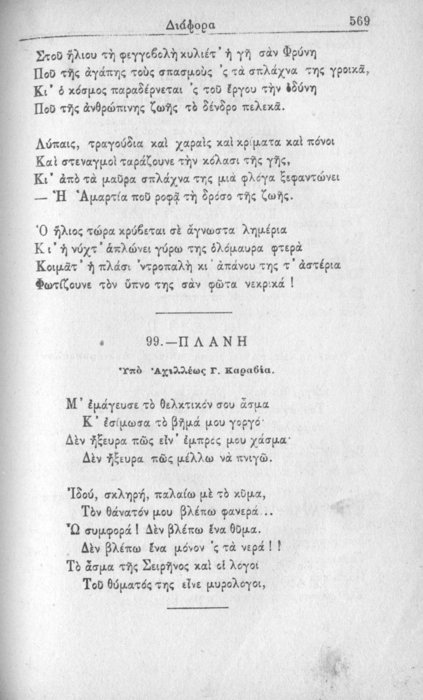 Διάφορα 569
Στοῦ ἥλιου τὴ φεγγοβολὴ κυλιέτ’ ἡ γῆ σὰν Φρύνη
Ποῦ τῆς ἀγάπης τοὺς σπασμοὺς ’ς τὰ σπλάχνα της γροικᾶ,
Κι’ ὁ κόσμος παραδέρνεται ’ς τοῦ ἔργου τὴν ὀδύνη
Ποῦ τῆς ἀνθρώπινης ζωῆς τὸ δένδρο πελεκᾶ.
Λύπαις, τραγούδια καὶ χαραῖς καὶ κρίματα καὶ πόνοι
Καὶ στεναγμοὶ ταράζουνε τὴν κόλασι τῆς γῆς,
Κι’ ἀπὸ τὰ μαῦρα σπλάχνα της μιὰ φλόγα ξεφαντώνει
— Ἡ Ἁμαρτία ποῦ ροφᾷ τὴ δρόσο τῆς ζωῆς.
Ὁ ἥλιος τώρα κρύβεται σὲ ἄγνωστα λημέρια
Κι’ ἡ νύχτ’ ἁπλώνει γύρω της ὁλόμαυρα φτερὰ
Κοιμᾶτ’ ἡ πλάσι ντροπαλὴ κι’ ἀπάνου της τ’ ἀστέρια
Φωτίζουνε τὸν ὕπνο της σὰν φῶτα νεκρικά !
99.—ΠΛΑΝΗ
Ὑπὸ Ἀχιλλέως Γ. Καραβία.
Μ’ ἐμάγευσε τὸ θελκτικόν σου ᾆσμα
Κ’ ἐσίμωσα τὸ βῆμά μου γοργό·
Δὲν ἤξευρα πῶς εἶν’ ἐμπρός μου χάσμα·
Δὲν ἤξευρα πῶς μέλλω νὰ πνιγῶ.
Ἰδού, σκληρή, παλαίω μὲ τὸ κῦμα,
Τὸν θάνατόν μου βλέπω φανερὰ...
Ὢ συμφορά ! Δὲν βλέπω ἕνα θῦμα.
Δὲν βλέπω ἕνα μόνον ’ς τὰ νερά ! !
Τὸ ᾆσμα τῆς Σειρῆνος καὶ οἱ λόγοι
Τοῦ θύματός της εἶνε μυρολογοι,